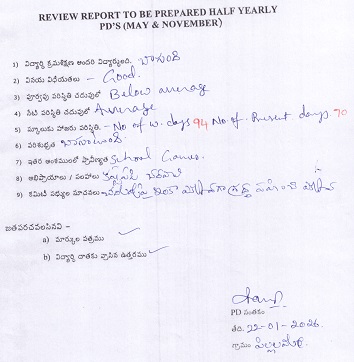 REVIEW REPORT TO BE PREPARED HALF YEARLY
PD'S (MAY & NOVEMBER)
1) విద్యార్థి క్రమశిక్షణ అందరి విద్యార్థులతో. బాగుంది
2) వినయ విధేయతలు – Good.
3) పూర్వపు పరిస్థితి చదువులో Below average
4) నేటి పరిస్థితి చదువులో Average
5) స్కూలుకు హాజరు పరిస్థితి. – No of w. days 94 No. of. Present days 70
6) పరిశుభ్రత బాగుంది
7) ఇతర అంశములలో ప్రావీణ్యత School Games.
8) అభిప్రాయాలు / సలహాలు
9) కమిటీ సభ్యుల సూచనలు – ఇంకా శ్రద్ధ
జతపరచవలసినవి –
a) మార్కుల పత్రము
b) విద్యార్థి దాతకు వ్రాసిన ఉత్తరము
PD సంతకం
తేది. 22-01-2026.
గ్రామం పిల్లలమర్రి.